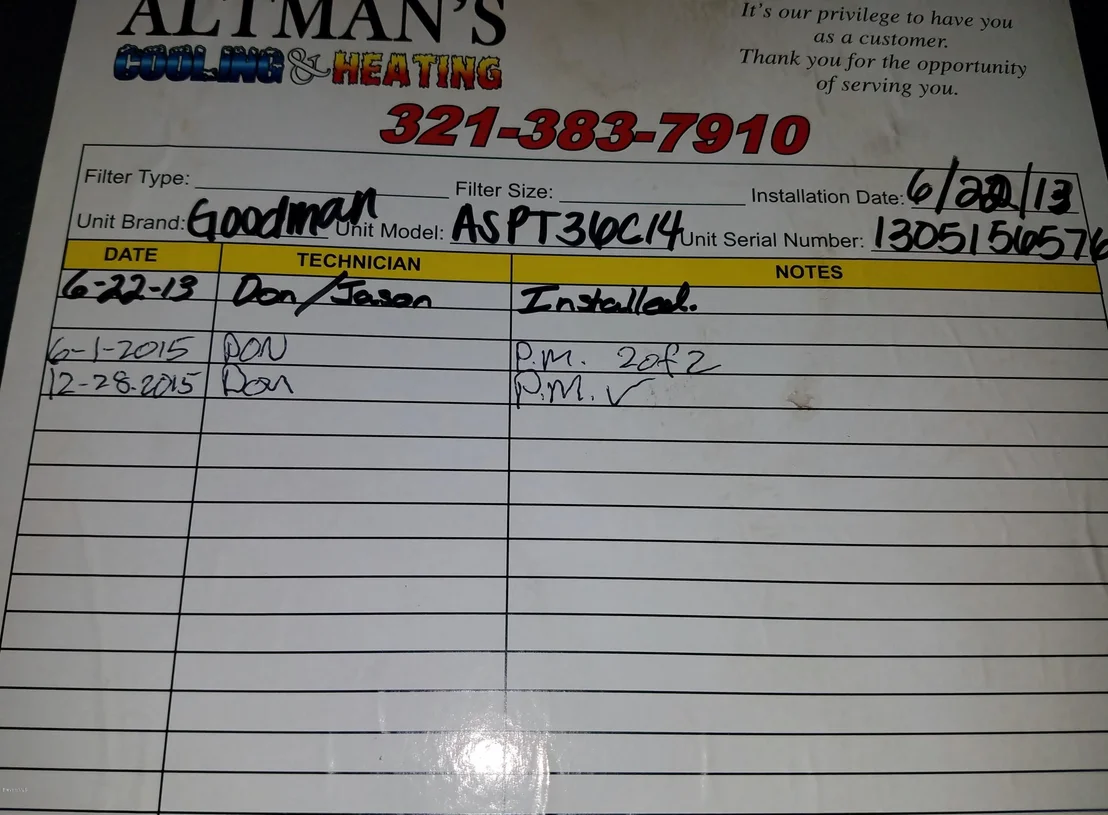 ALTMAN'S
COOLING & HEATING
It's our privilege to have you
as a customer.
Thank you for the opportunity
of serving you.
321-383-7910
Filter Type: Filter Size: Installation Date: 6/22/13
Unit Brand: Goodman Unit Model: ASPT36C14 Unit Serial Number: 1305156576
DATE TECHNICIAN NOTES
6-22-13 Don/Jason Installed.
6-1-2015 DON P.M. 2 of 2
12-28-2015 Don P.M. ✓